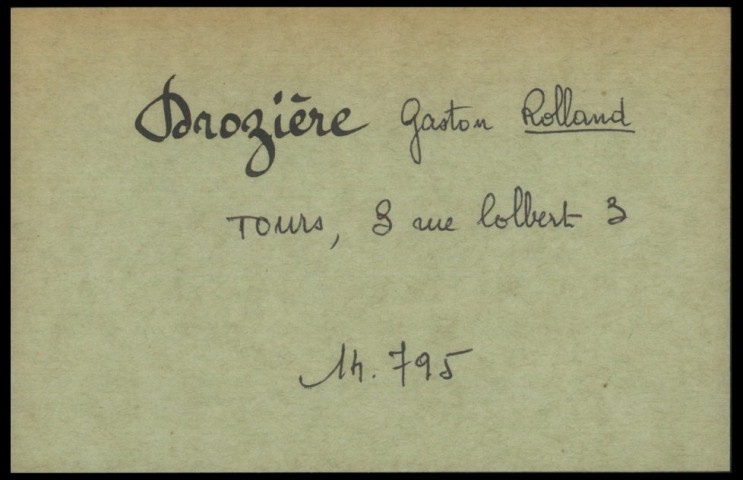 Drozière Gaston Rolland
TOURS, 3 rue Colbert 3
14.795